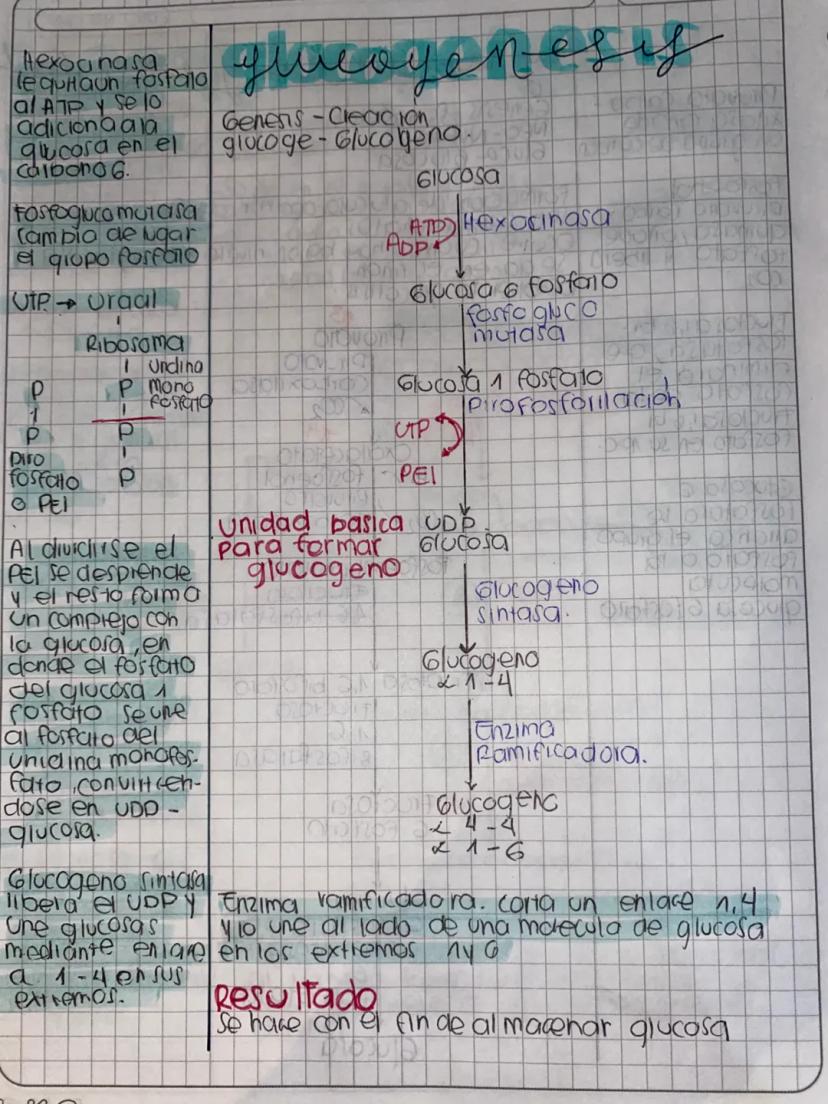 glucogenesis
Hexocinasa
le quita un fosfato
al ATP y se lo
adiciona a la
glucosa en el
carbono 6.
Fosfoglucomutasa
cambia de lugar
el grupo fosfato
UTP → Uracil
Ribosoma
Uridina
P P mono
fosfato
P P
piro
fosfato P
o PEI
Al dividirse el
PEI se desprende
y el resto forma
un complejo con
la glucosa, en
donde el fosfato
del glucosa 1
fosfato se une
al fosfato del
uridina monofos-
fato, convirtien-
dose en UDP-
glucosa.
Glucogeno sintasa
libera el UDP y
une glucosas
mediante enlace
α 1-4 en sus
extremos.
Genesis - Creación
glucoge - Glucogeno.
Glucosa
ATP Hexocinasa
ADP
Glucosa 6 fosfato
fosfogluco
mutasa
Glucosa 1 fosfato
Pirofosforilación
UTP
PEI
Unidad basica UDP
para formar glucosa
glucogeno
Glucogeno
sintasa.
Glucogeno
α 1-4
Enzima
Ramificadora.
Glucogeno
α 4-4
α 1-6
Enzima ramificadora. corta un enlace 1,4
y lo une al lado de una molecula de glucosa
en los extremos 1 y 6
Resultado
Se hace con el fin de almacenar glucosa